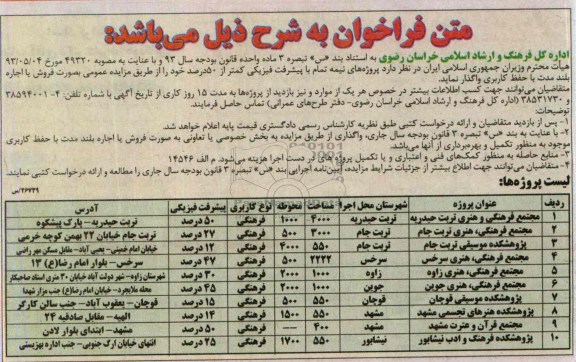 متن فراخوان به شرح ذیل می‌باشد:
اداره کل فرهنگ و ارشاد اسلامی خراسان رضوی به استناد بند «س» تبصره ۳ ماده واحده قانون بودجه سال ۹۳ و با عنایت به مصوبه ۴۹۳۲۰ مورخ ۹۳/۰۵/۰۴
هیأت محترم وزیران جمهوری اسلامی ایران در نظر دارد پروژه‌های نیمه تمام با پیشرفت فیزیکی کمتر از ۵۰درصد خود را از طریق مزایده عمومی بصورت فروش یا اجاره
بلند مدت با حفظ کاربری واگذار نماید.
متقاضیان می‌توانند جهت کسب اطلاعات بیشتر در خصوص هر یک از موارد و نیز بازدید از پروژه‌ها به مدت ۱۵ روز کاری از تاریخ آگهی با شماره تلفن: ۴- ۳۸۵۹۴۰۰۱
۳۸۵۳۱۷۳۰ (اداره کل فرهنگ و ارشاد اسلامی خراسان رضوی- دفتر طرح‌های عمرانی) تماس حاصل فرمایند.
توضیحات:
۱- پس از بازدید متقاضیان و ارائه درخواست کتبی طبق نظریه کارشناس رسمی دادگستری قیمت پایه اعلام خواهد شد.
۲- با عنایت به بند «س» تبصره ۳ قانون بودجه سال جاری، واگذاری از طریق مزایده به بخش خصوصی یا تعاونی به صورت فروش یا اجاره بلند مدت با حفظ کاربری
موجود به منظور تکمیل و بهره‌برداری از آنها می‌باشد.
۳- منابع حاصله به منظور کمک‌های فنی و اعتباری و یا تکمیل پروژه های در دست اجرا هزینه می‌شود. م الف ۱۴۵۴۶
۴- متقاضیان می‌توانند جهت اطلاع بیشتر از جزئیات شرایط مزایده، آیین‌نامه اجرایی بند «س» تبصره ۳ قانون بودجه سال جاری را مطالعه و ارائه درخواست کتبی نمایند.
لیست پروژه‌ها: ۲۶۷۳۹/ص
ردیف عنوان پروژه شهرستان محل اجرا مساحت محوطه نوع کاربری پیشرفت فیزیکی آدرس
۱ مجتمع فرهنگی و هنری تربت حیدریه تربت حیدریه ۴۰۰۰ ۱۰۰۰ فرهنگی ۵۰ درصد تربت حیدریه- پارک پیشکوه
۲ مجتمع فرهنگی، هنری تربت جام تربت جام ۳۰۰۰ ۵۰۰ فرهنگی ۲۷ درصد تربت جام خیابان ۲۲ بهمن کوچه خرمی
۳ پژوهشکده موسیقی تربت جام تربت جام ۵۵۰ ۴۰۰۰ فرهنگی ۱۲ درصد خیابان امام خمینی- یحیی آباد- مقابل مسکن مهر راضی
۴ مجتمع فرهنگی، هنری سرخس سرخس ۲۲۲۲ ۵۰۰ فرهنگی ۴۷ درصد سرخس- بلوار امام رضا(ع) ۱۳
۵ مجتمع فرهنگی، هنری زاوه زاوه ۱۰۰۰ ۲۰۰۰ فرهنگی ۳۰ درصد شهرستان زاوه- شهر دولت آباد خیابان ۳۰ متری استاد صاحبکار
۶ مجتمع فرهنگی، هنری جوین جوین ۱۰۰۰ ۲۰۰۰ فرهنگی ۴۵ درصد محله ملابجرد- خیابان امام رضا(ع) جنب مزار شهدا
۷ پژوهشکده موسیقی قوچان قوچان ۵۵۰ ۵۰۰ فرهنگی ۱۵ درصد قوچان- یعقوب آباد- جنب سالن کارگر
۸ پژوهشکده هنرهای تجسمی مشهد مشهد ۵۵۰ ۱۵۰۰ فرهنگی ۱۴ درصد الهیه- مقابل صادقیه ۲۴
۹ مجتمع قرآن و عترت مشهد مشهد ۴۰۰ --- فرهنگی ۵۰ درصد مشهد- ابتدای بلوار لادن
۱۰ پژوهشکده فرهنگ و ادب نیشابور نیشابور ۵۵۰ ۱۷۰۰ فرهنگی ۲۵ درصد انتهای خیابان ارک جنوبی- جنب اداره بهزیستی